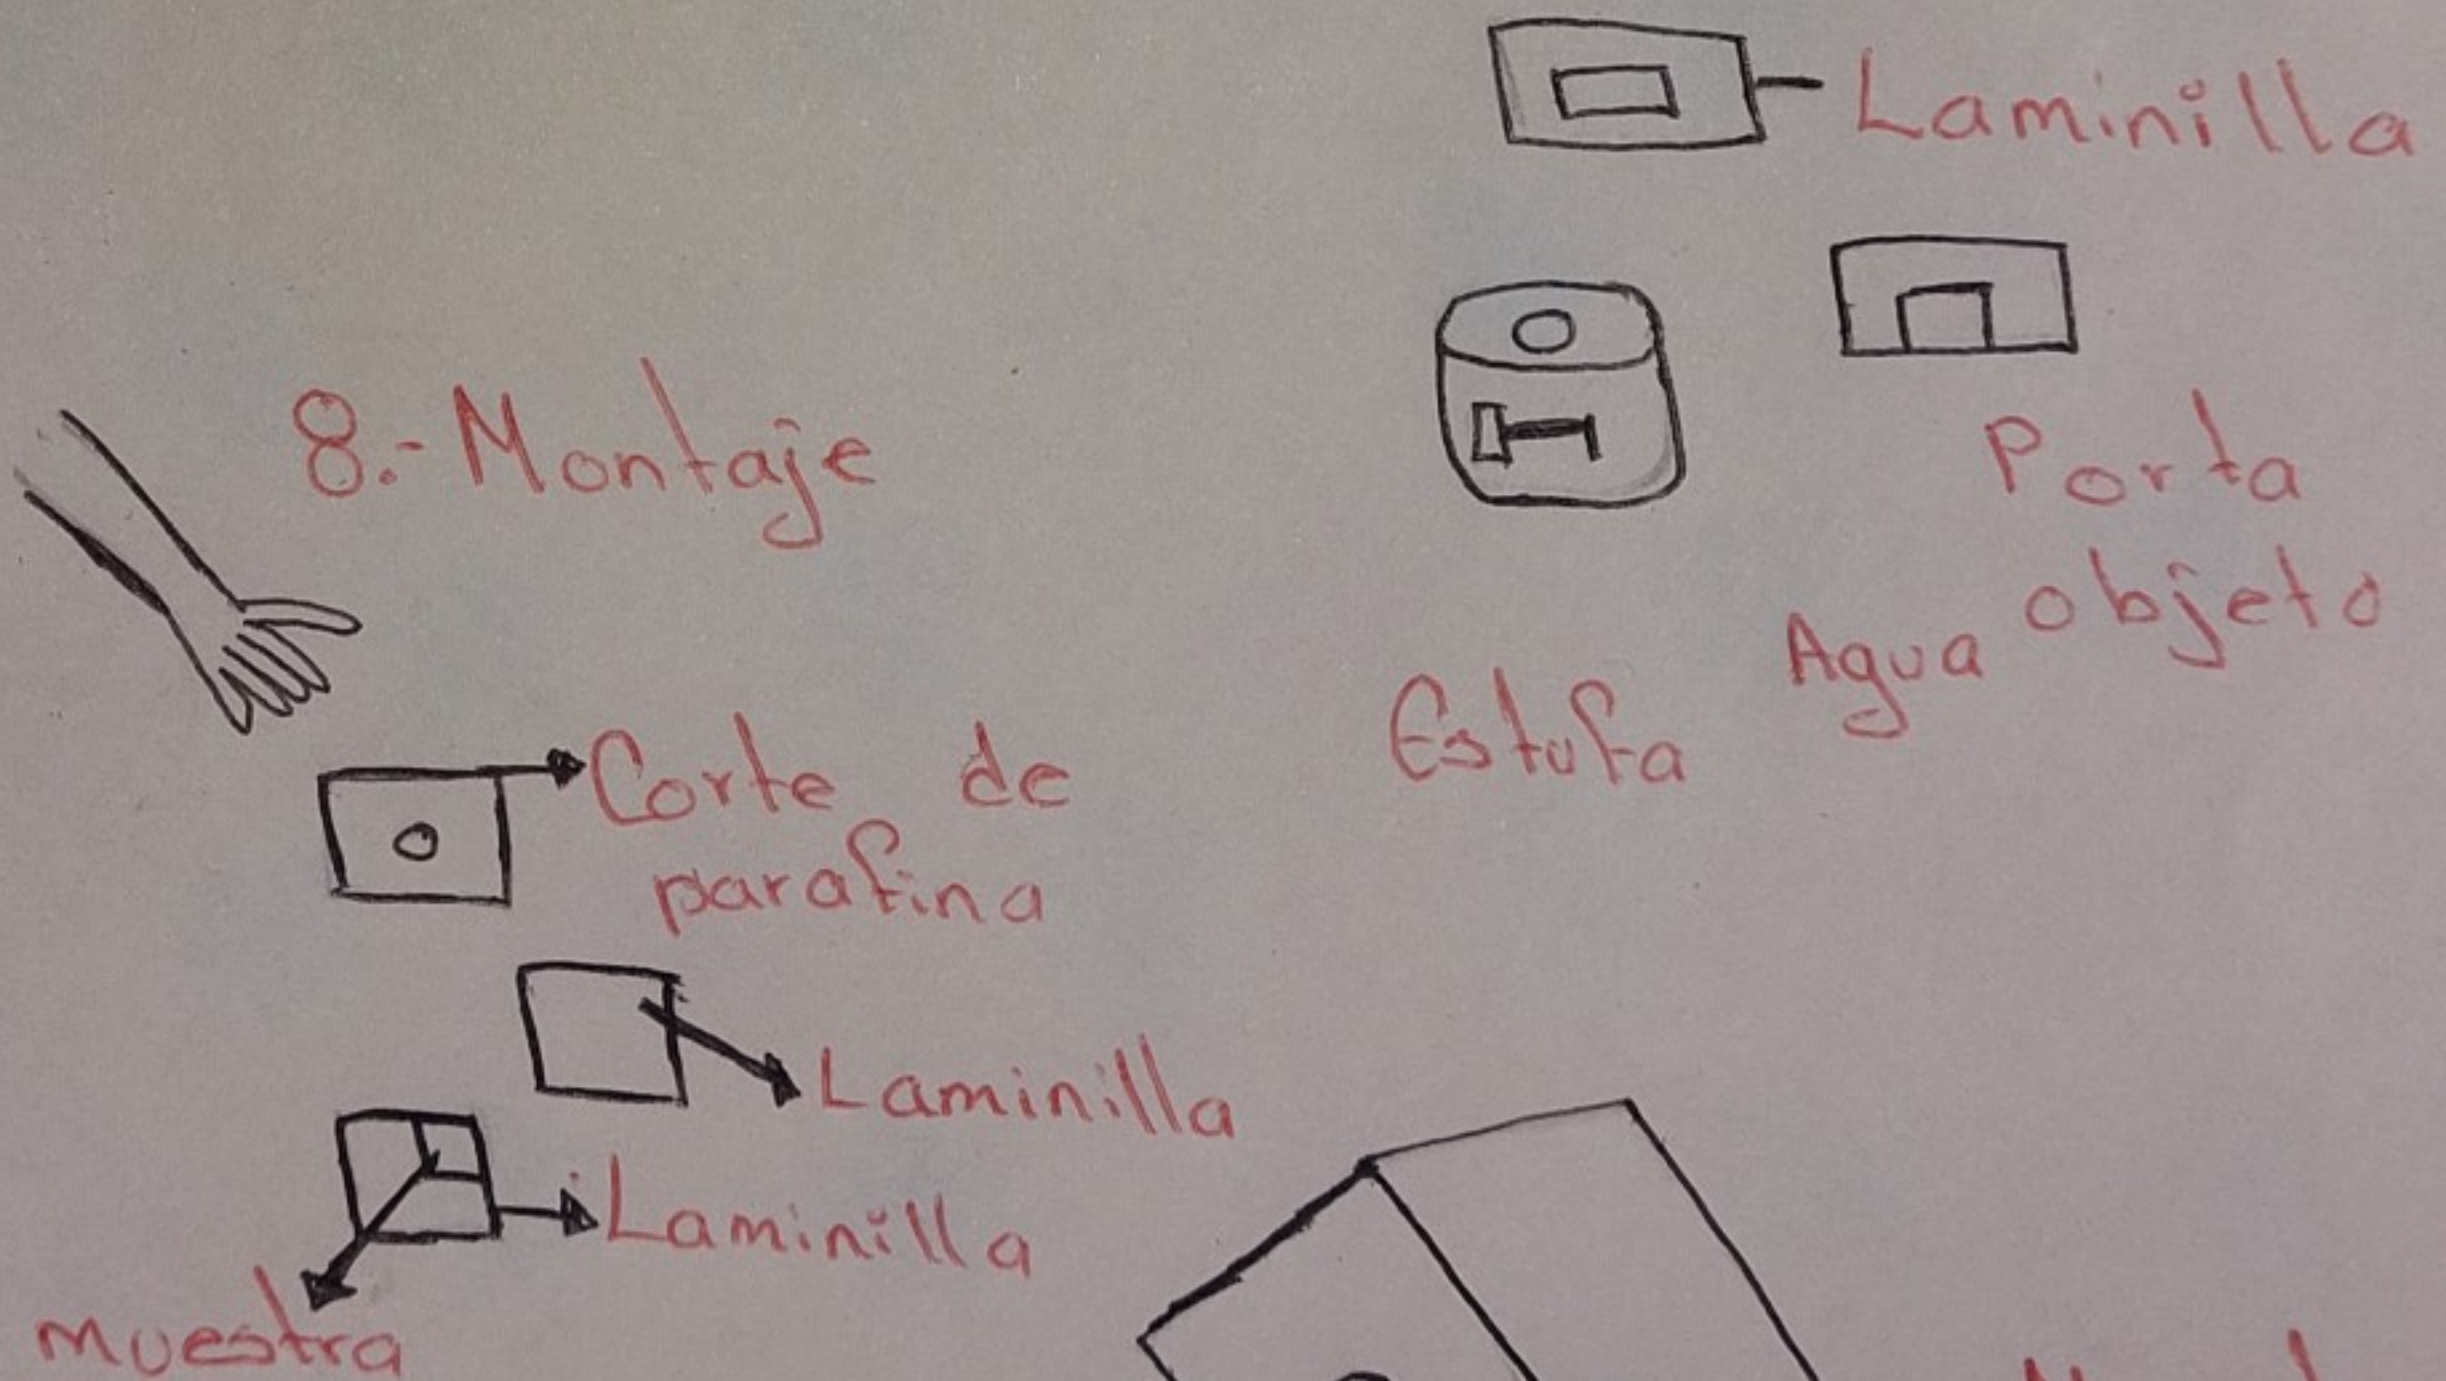 Laminilla
8.- Montaje
Porta
objeto
Agua
Estufa
Corte de
parafina
Laminilla
Laminilla
muestra